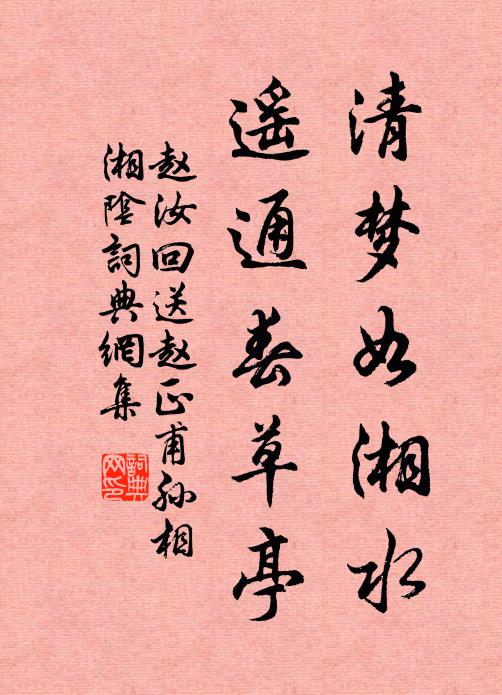 清梦如湘水
遥通春草亭
赵汝回送赵正甫孙相
湘陰詞典網集
詞典
网印